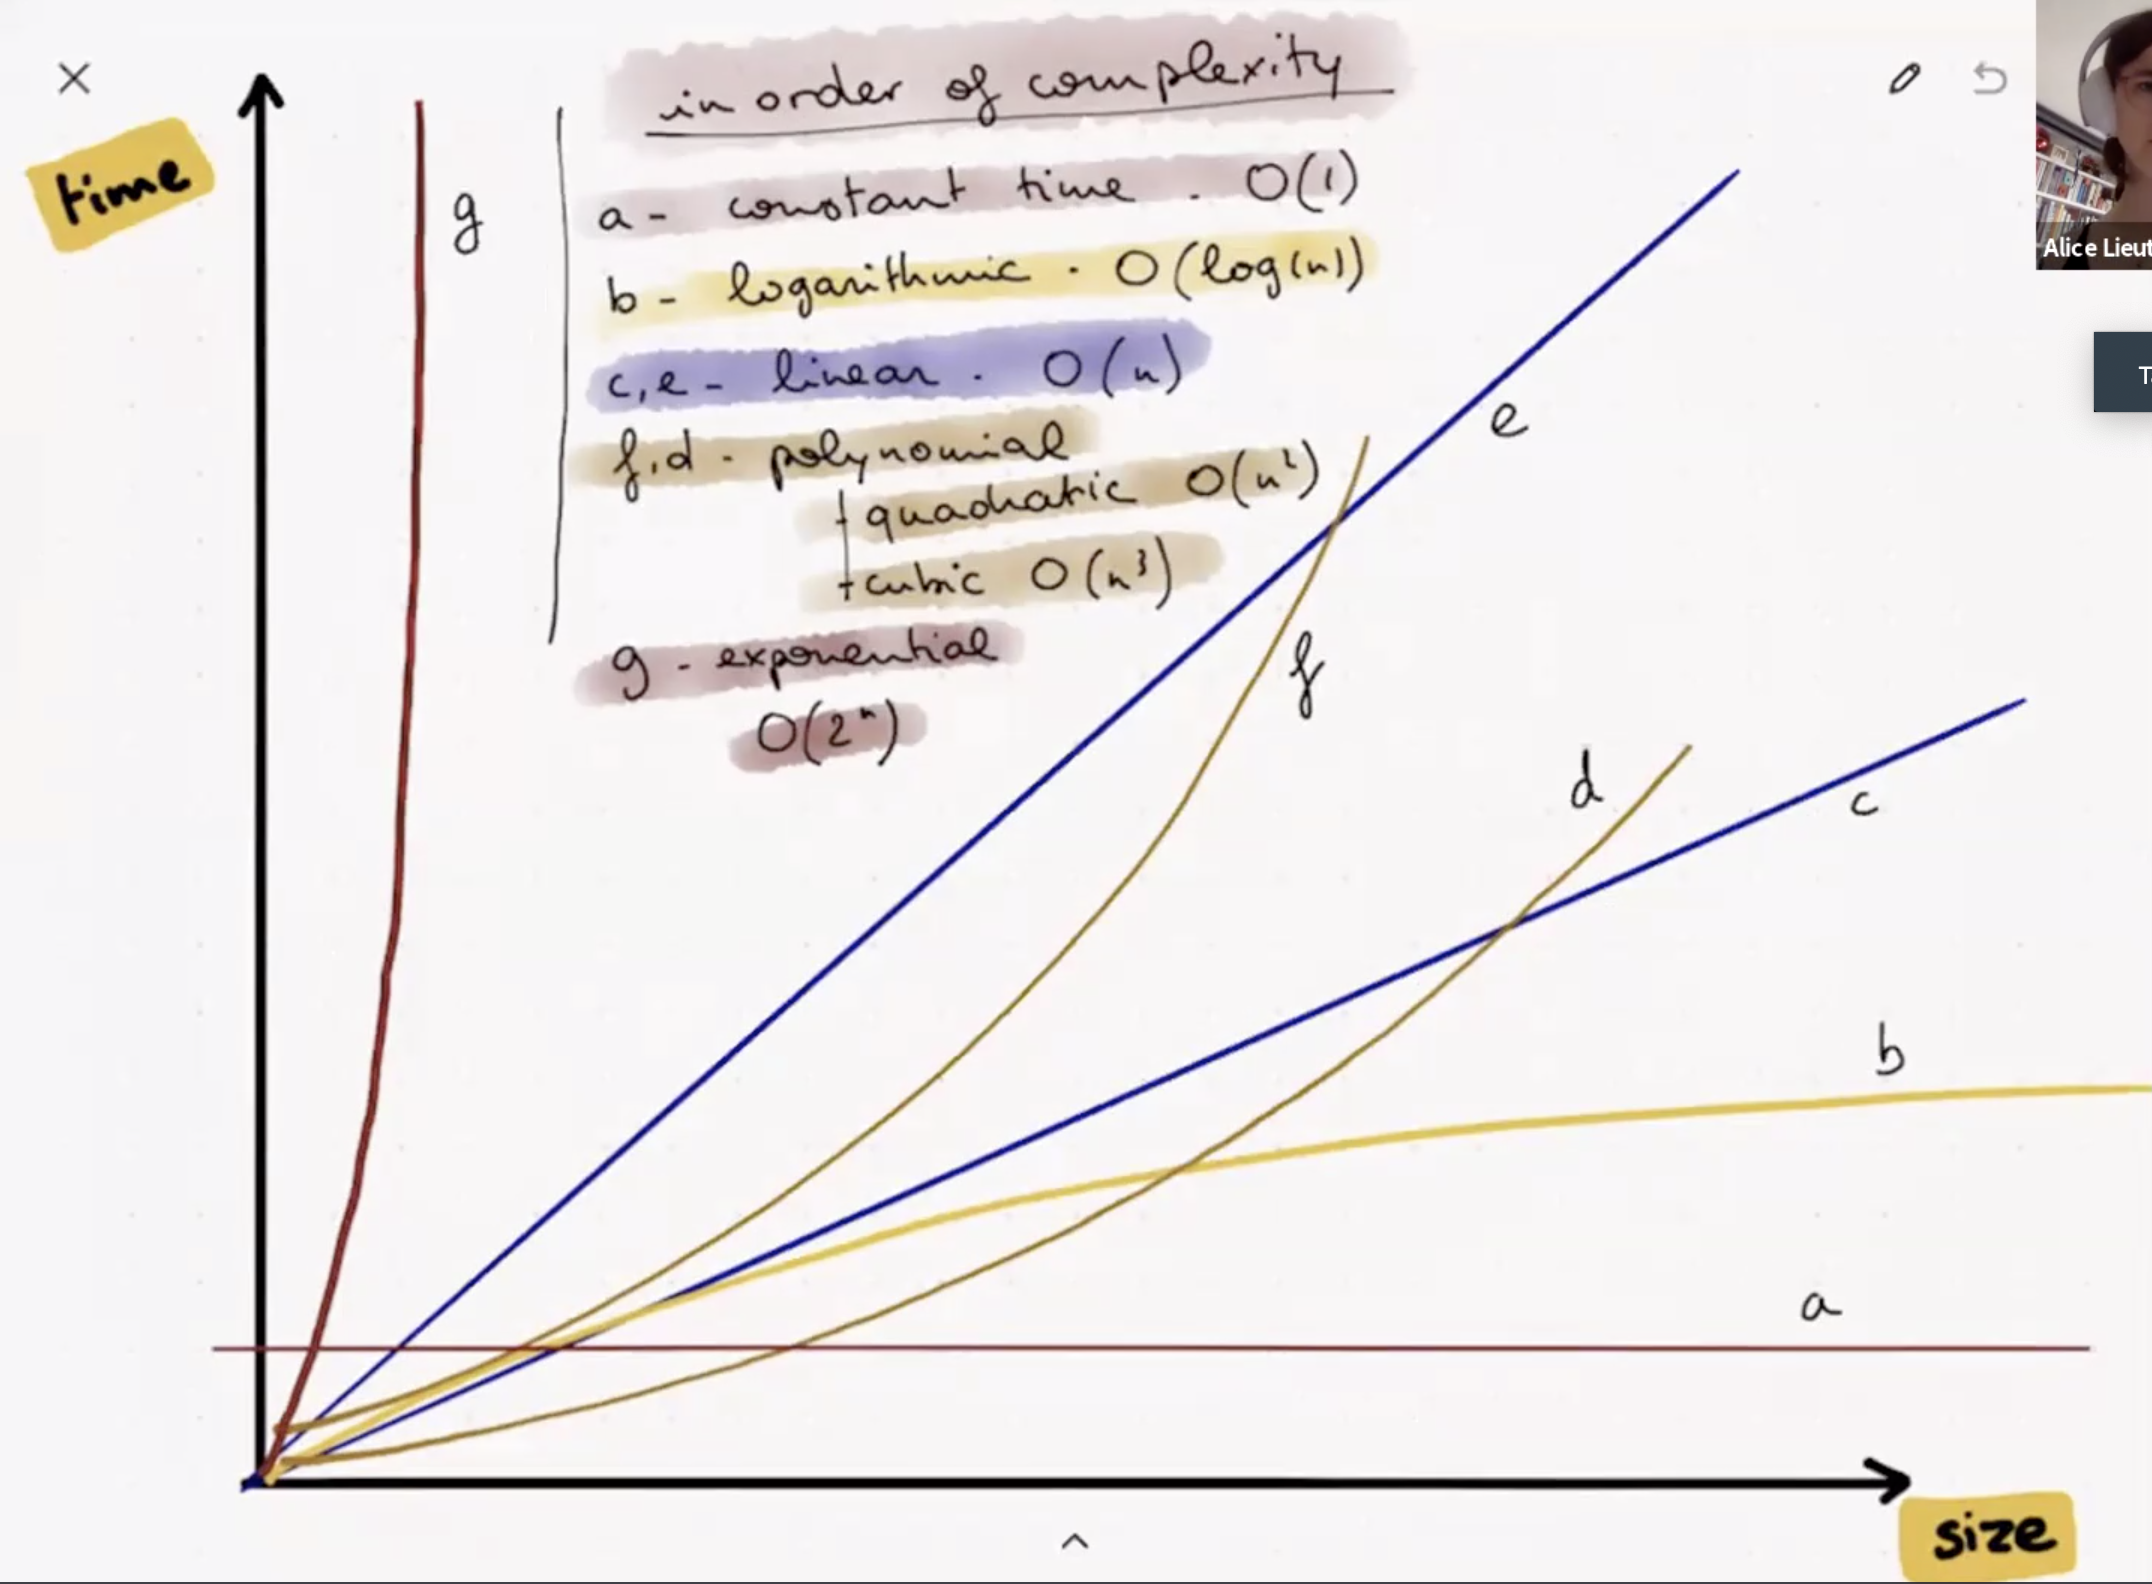 in order of complexity
time
g
a - constant time . O(1)
b - logarithmic . O(log(n))
c, e - linear . O(n)
f, d - polynomial
quadratic O(n²)
cubic O(n³)
g - exponential
O(2ⁿ)
Alice Lieut
e
f
d
c
b
a
size